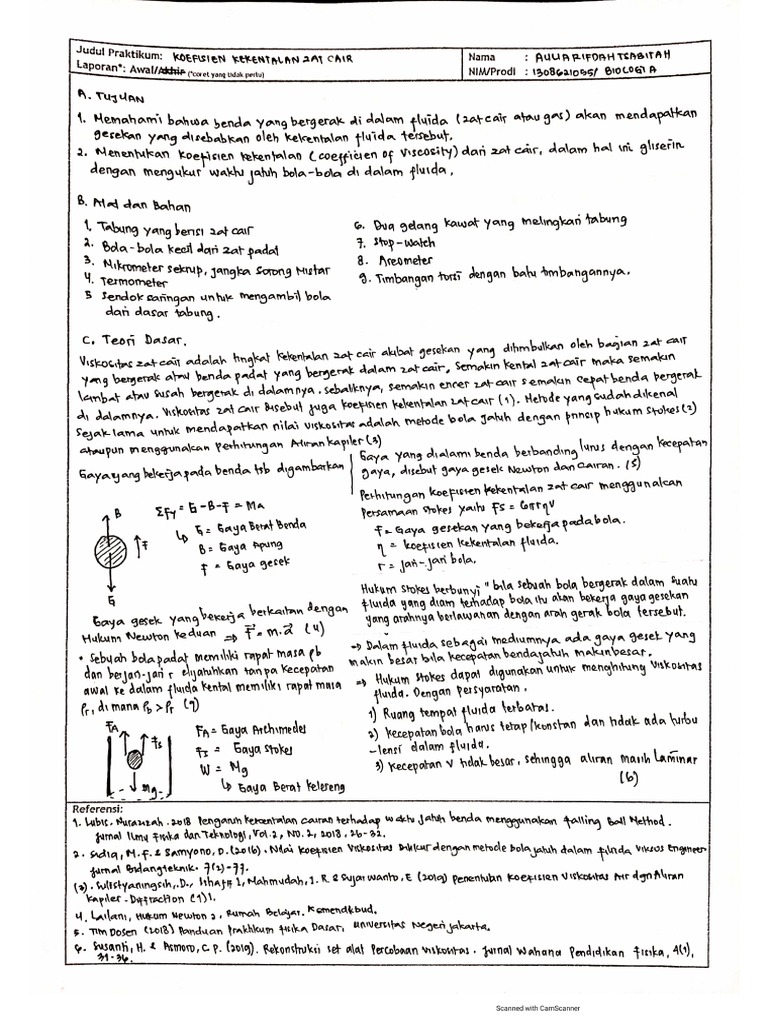 Judul Praktikum: KOEFISIEN KEKENTALAN ZAT CAIR
Laporan*: Awal/Akhir (*coret yang tidak perlu)
Nama : AULIA RIFDAH TSABITAH
NIM/Prodi : 1308621055/ BIOLOGI A
A. TUJUAN
1. Memahami bahwa benda yang bergerak di dalam fluida (zat cair atau gas) akan mendapatkan
gesekan yang disebabkan oleh kekentalan fluida tersebut.
2. Menentukan koefisien kekentalan (coefficien of viscosity) dari zat cair, dalam hal ini gliserin
dengan mengukur waktu jatuh bola-bola di dalam fluida.
B. Alat dan Bahan
1. Tabung yang berisi zat cair
2. Bola-bola kecil dari zat padat
3. Mikrometer sekrup, jangka sorong Mistar
4. Termometer
5 Sendok saringan untuk mengambil bola
dari dasar tabung.
6. Dua gelang kawat yang melingkari tabung
7. Stop-watch
8. Areometer
9. Timbangan torsi dengan batu timbangannya.
C. Teori Dasar.
Viskositas zat cair adalah tingkat kekentalan zat cair akibat gesekan yang ditimbulkan oleh bagian zat cair
yang bergerak atau benda padat yang bergerak dalam zat cair, Semakin kental zat cair maka semakin
lambat atau susah bergerak di dalamnya. sebaliknya, semakin encer zat cair semakin cepat benda bergerak
di dalamnya. Viskositas zat cair disebut juga koefisien kekentalan zat cair (1). Metode yang sudah dikenal
sejak lama untuk mendapatkan nilai viskositas adalah metode bola jatuh dengan prinsip hukum Stokes (2)
ataupun menggunakan perhitungan Aliran kapiler (3)
Gaya yang bekerja pada benda tsb digambarkan
B
F
G
ΣFy = G - B - F = Ma
↳ G = Gaya Berat Benda
B = Gaya Apung
F = Gaya gesek
Gaya gesek yang bekerja berkaitan dengan
Hukum Newton kedua ⇒ F = m.a (4)
• Sebuah bola padat memiliki rapat masa ρb
dan berjari-jari r dijatuhkan tanpa kecepatan
awal ke dalam fluida kental memiliki rapat masa
ρf, di mana ρb > ρf (4)
FA
Fs
Mg
FA = Gaya Archimedes
Fs = Gaya Stokes
W = Mg
↳ Gaya Berat kelereng
Gaya yang dialami benda berbanding lurus dengan kecepatan
gaya, disebut gaya gesek Newton dan cairan. (5)
Perhitungan koefisien kekentalan zat cair menggunakan
Persamaan Stokes yaitu Fs = 6πrηv
F = Gaya gesekan yang bekerja pada bola.
η = koefisien kekentalan fluida.
r = jari-jari bola.
Hukum Stokes berbunyi "bila sebuah bola bergerak dalam suatu
fluida yang diam terhadap bola itu akan bekerja gaya gesekan
yang arahnya berlawanan dengan arah gerak bola tersebut.
⇒ Dalam fluida sebagai mediumnya ada gaya gesek yang
makin besar bila kecepatan benda jatuh makin besar.
⇒ Hukum Stokes dapat digunakan untuk menghitung viskositas
fluida. Dengan persyaratan.
1) Ruang tempat fluida terbatas.
2) kecepatan bola harus tetap/konstan dan tidak ada turbu
-lensi dalam fluida.
3) kecepatan v tidak besar, sehingga aliran masih laminar
(6)
Referensi:
1. Lubis. Nurazizah. 2018 Pengaruh kekentalan cairan terhadap waktu jatuh benda menggunakan falling Ball Method.
Jurnal Ilmu Fisika dan Teknologi, Vol. 2, NO. 2, 2018, 26-32.
2. Sidiq, M. F. & Samyono, D. (2016). Nilai Koefisien Viskositas Diukur dengan metode bola jatuh dalam fluida Viskus Engineer
Jurnal Bidang teknik. 7(2)-77.
(3). Sulistyaningsih, D., Ishafit I, Mahmudah, I. R. & Sujarwanto, E (2019) Penentuan Koefisien Viskositas Air dgn Aliran
Kapiler. Diffraction (1)1.
4. Lailani, Hukum Newton 2, Rumah Belajar. Kemendikbud.
5. TIM Dosen (2018) Panduan Praktikum Fisika Dasar, universitas Negeri Jakarta.
6. Susanti, H. & Asmoro, C. P. (2019). Rekonstruksi set alat Percobaan viskositas. Jurnal Wahana Pendidikan Fisika, 4(1),
31-36.
Scanned with CamScanner